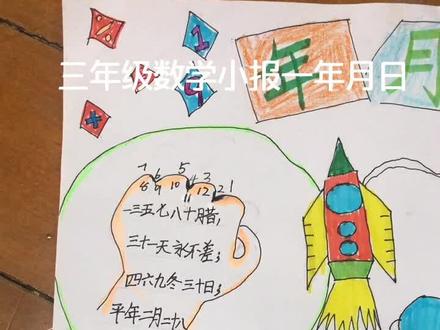 三年级数学小报一年月日
年月
7 5 3 1
8 6 10 4 12 2
11
一三五七八十月腊,
三十一天永不差;
四六九冬三十日;
平年二月二十八